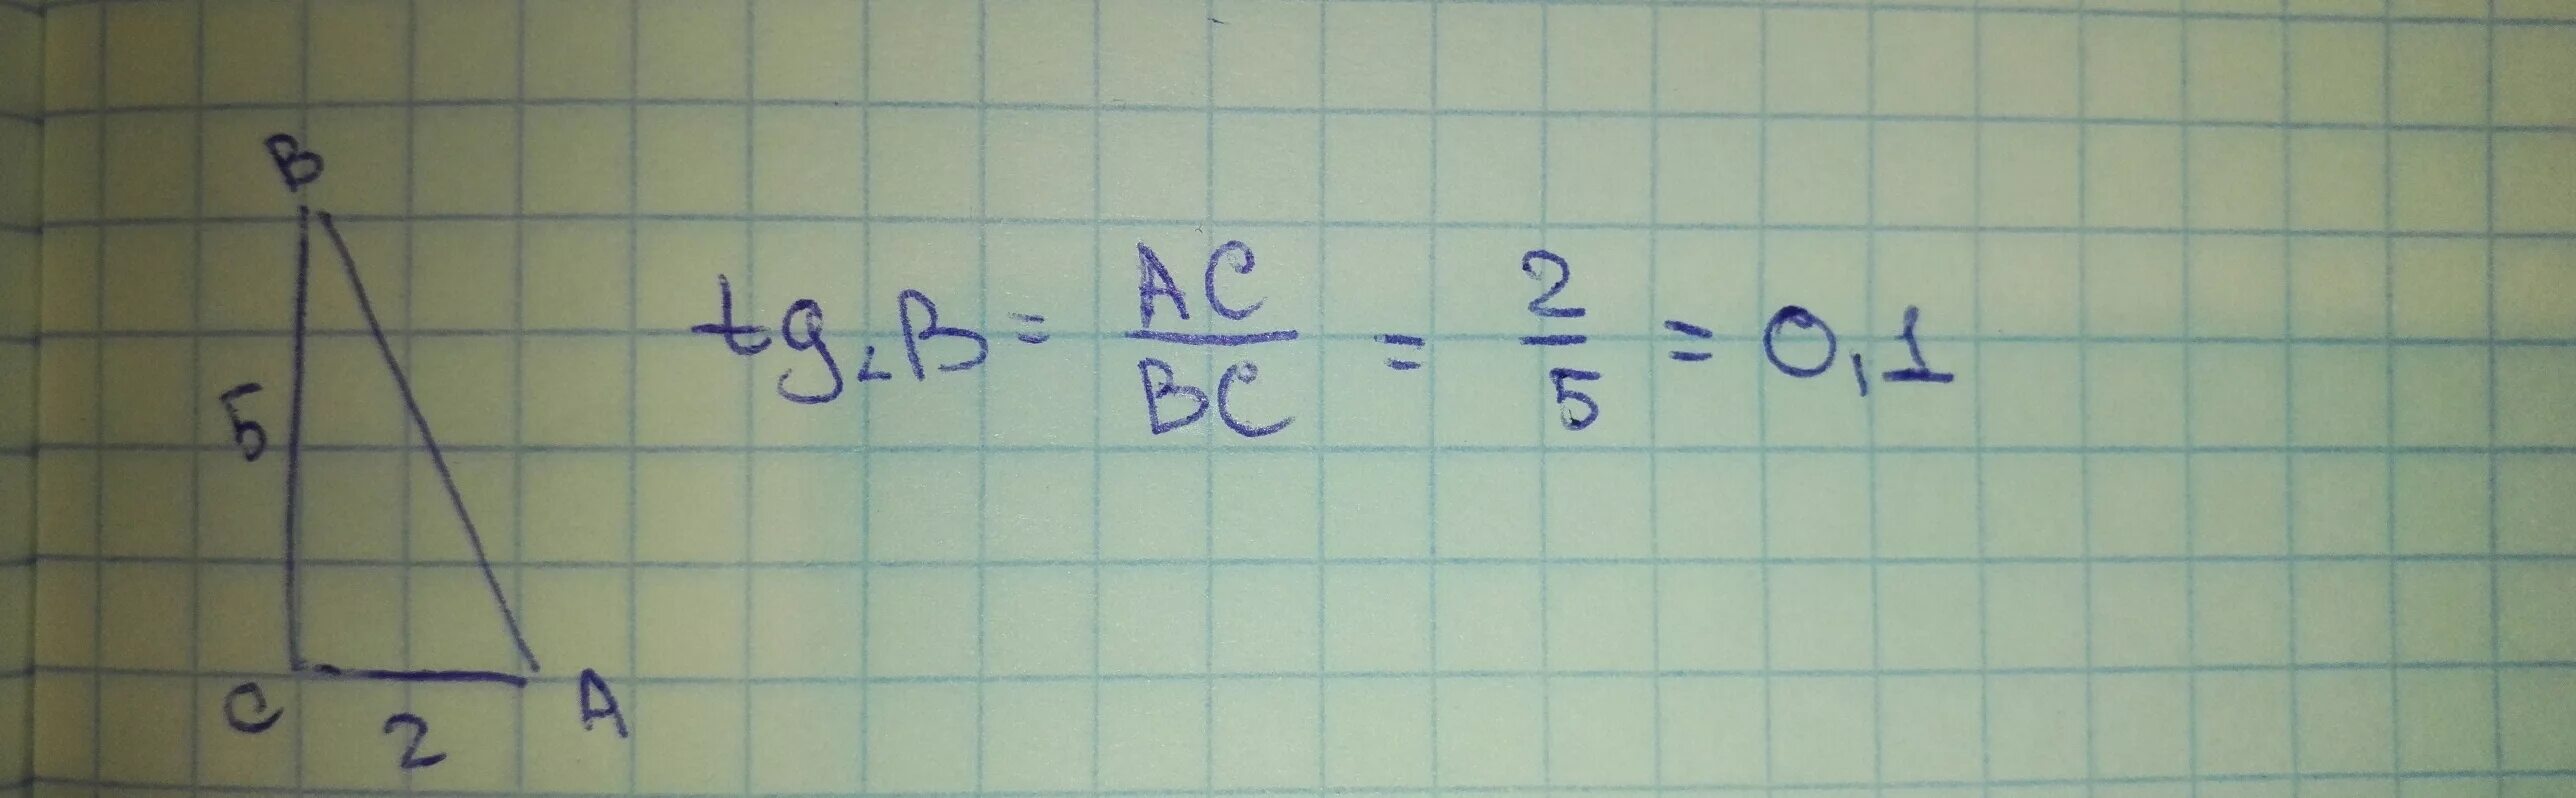 B
5
C
2
A
tg∠B = AC/BC = 2/5 = 0,1